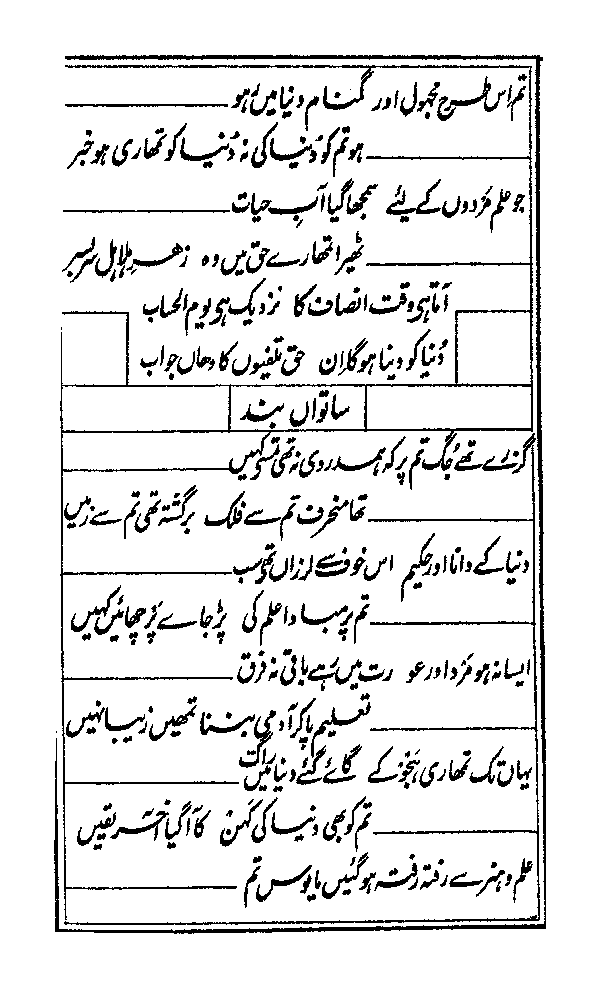 تم اس طرح مجہول اور گمنام دنیا میں رہو
ہو تم کو دُنیا کی نہ دُنیا کو تمھاری ہو خبر
جو علم مَردوں کے لیئے سمجھا گیا آبِ حیات
ٹھیرا تمھارے حق میں وہ زھرِ ہلاہل سر بسر
آتا ہی وقت انصاف کا نزدیک ہی یوم الحساب
دُنیا کو دینا ہو گا اِن حق تلفیوں کا وھاں جواب
ساتواں بند
گزرے تھے جُگ تم پر کہ ہمدردی نہ تھی تم سے کہیں
تھا منحرف تم سے فلک برگشتہ تھی تم سے زمیں
دنیا کے دانا اور حکیم اس خوف سے لرزاں تھے سب
تم پر مبادا علم کی پڑ جاے پَرچھائیں کہیں
ایسا نہ ہو مَرد اور عورت میں رہے باقی نہ فرق
تعلیم پا کر آدمی بننا تمھیں زیبا نہیں
یہاں تک تمھاری ہَجو کے گاے گئے دنیا میں راگ
تم کو بھی دنیا کی کَہَن کا آگیا آخر یقیں
علم و ہنر سے رفتہ رفتہ ہو گئیں مایوس تم